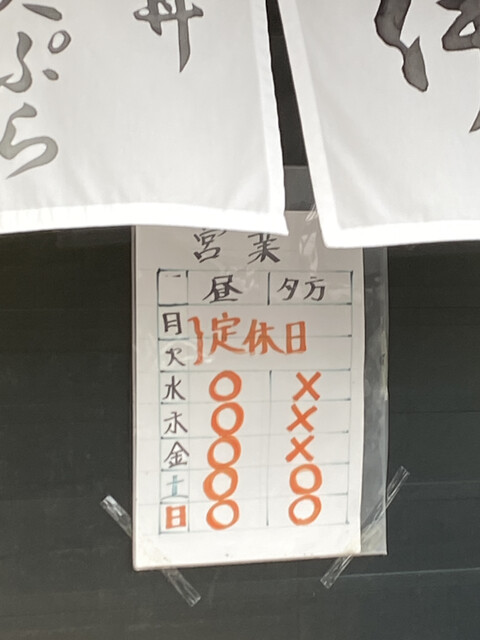 丼
天ぷら
営業
昼 夕方
月 } 定休日
火
水 ○ ×
木 ○ ×
金 ○ ×
土 ○ ○
日 ○ ○